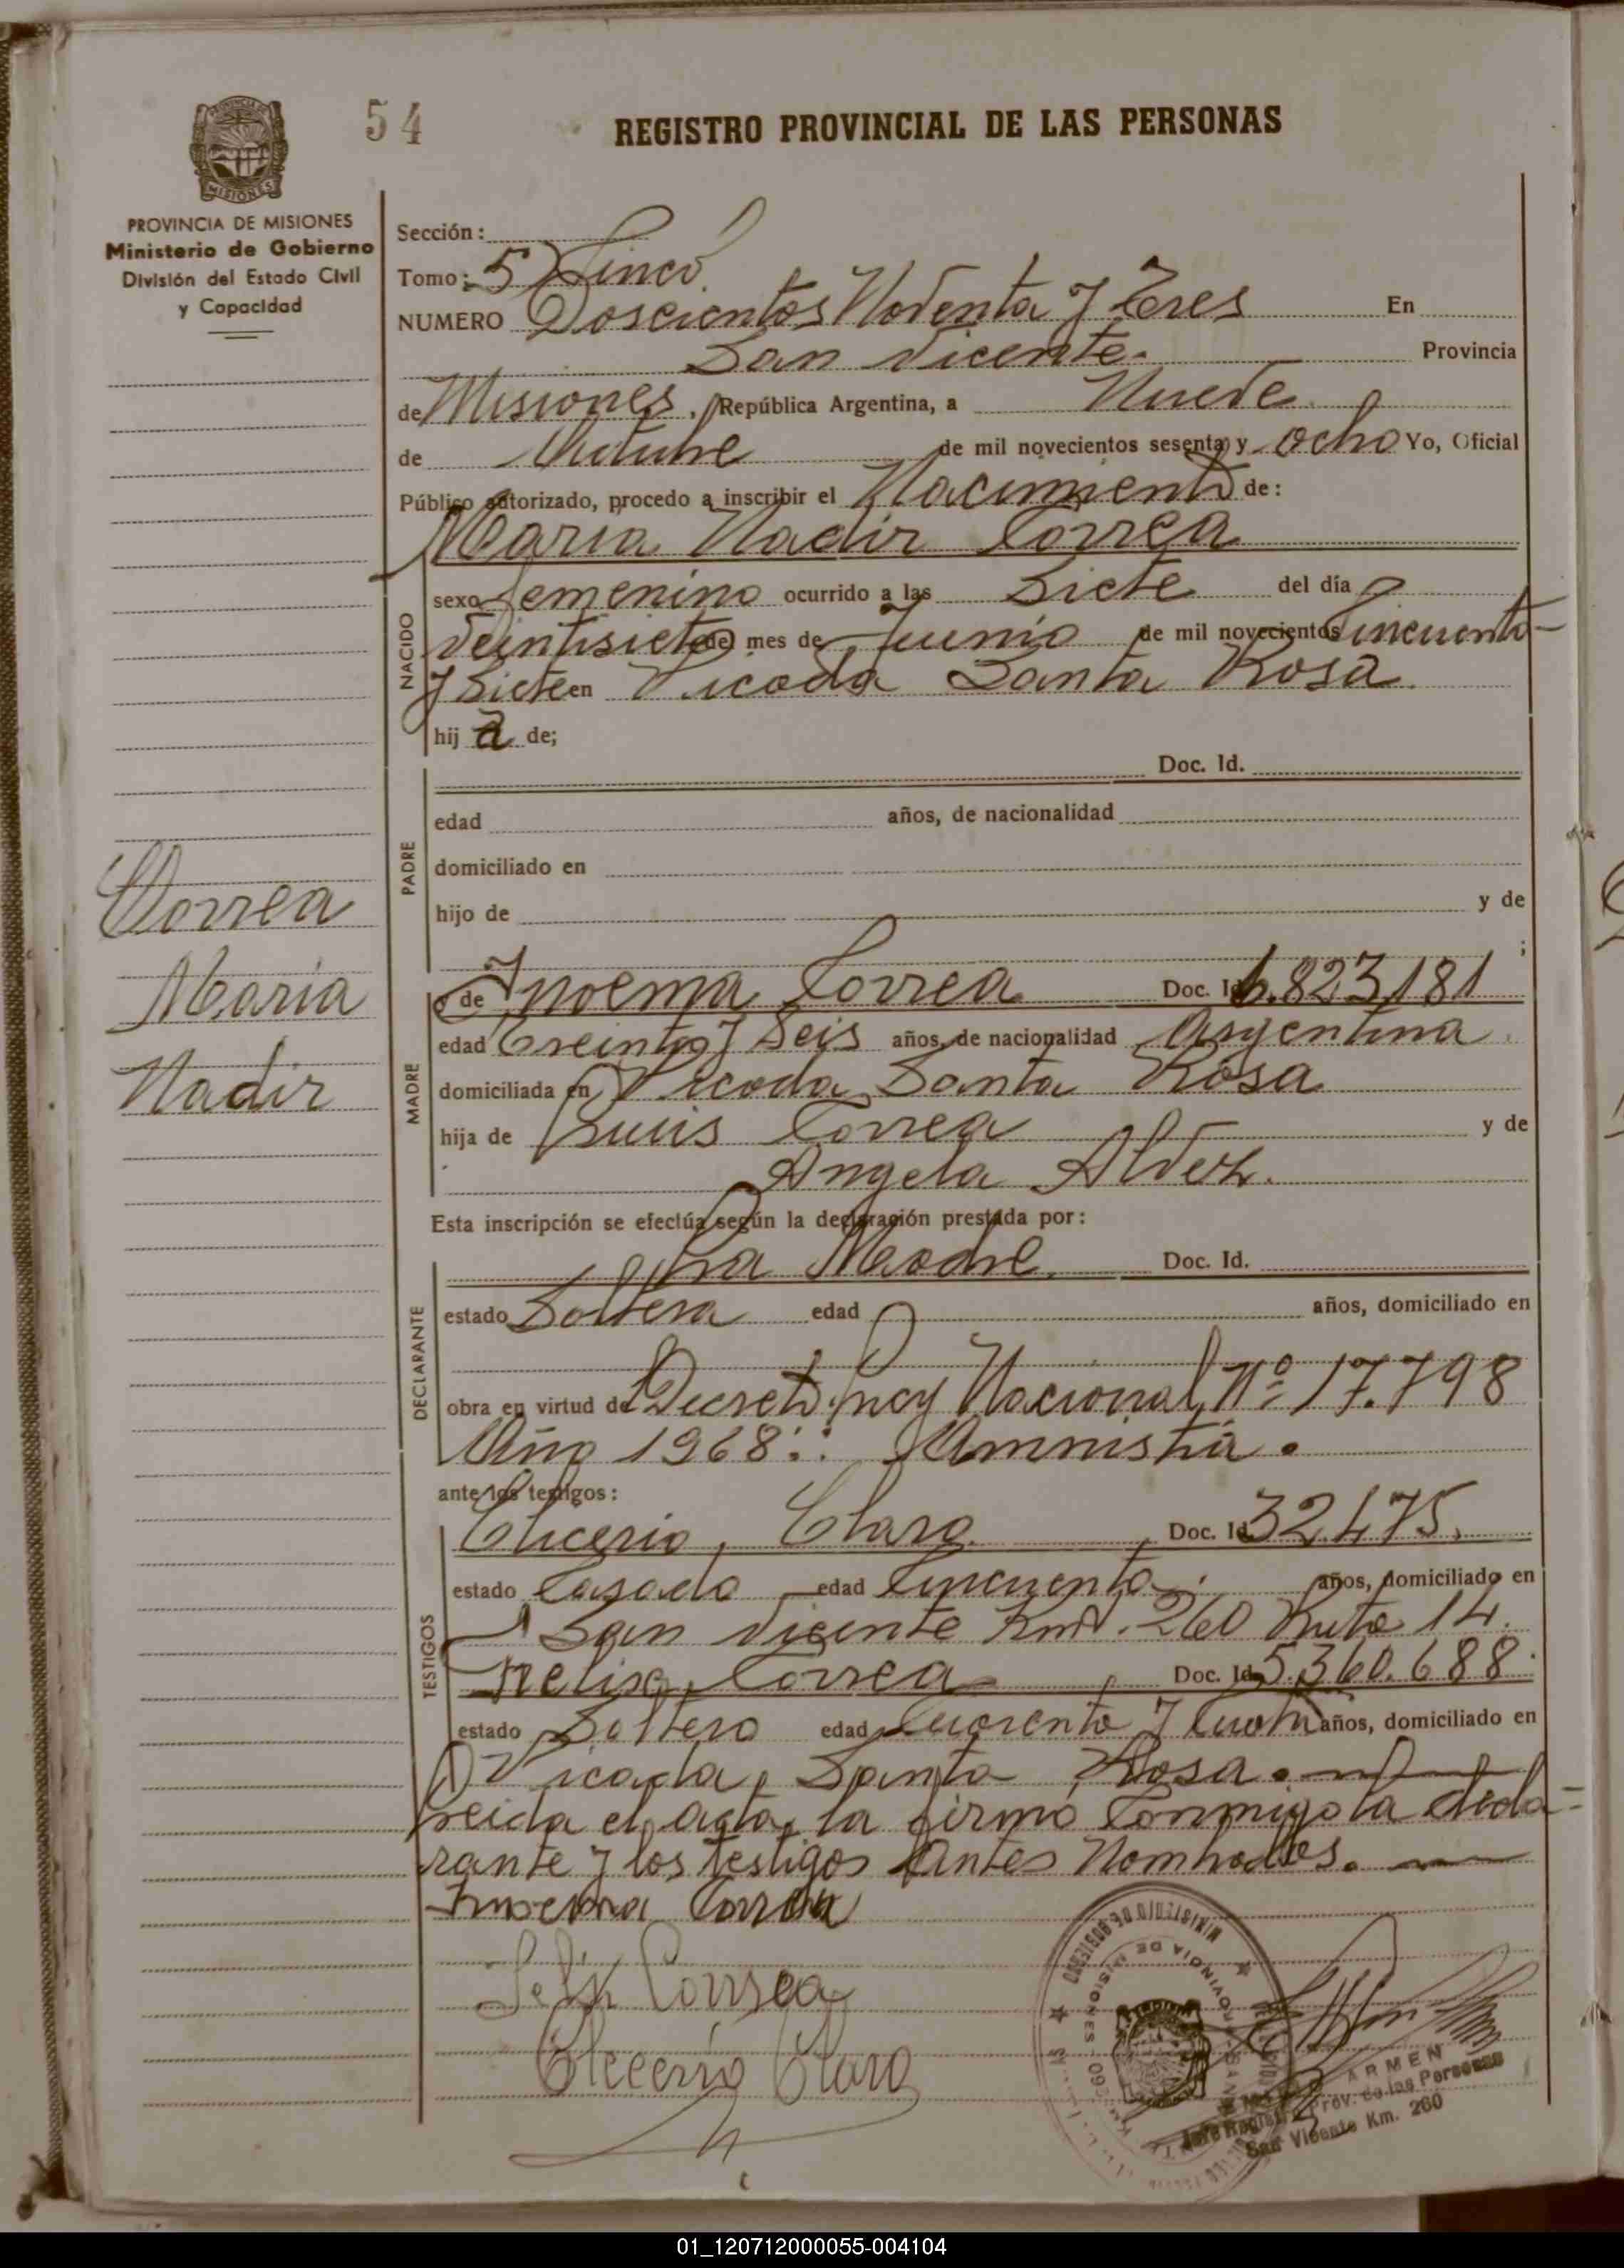 54
REGISTRO PROVINCIAL DE LAS PERSONAS
MISIONES
PROVINCIA DE MISIONES
Ministerio de Gobierno
División del Estado Civil
y Capacidad
Sección:
Tomo: 5) Cinco.
NUMERO Doscientos Noventa y Tres En
San Vicente. Provincia
de Misiones, República Argentina, a Nueve
de Octubre de mil novecientos sesenta y ocho Yo, Oficial
Público autorizado, procedo a inscribir el Nacimiento de:
Maria Nadir Correa
NACIDO
sexo femenino ocurrido a las Siete del día
Veintisiete del mes de Junio de mil novecientos Cincuenta
y Siete en Picada Santa Rosa.
hij a de;
Doc. Id.
PADRE
edad años, de nacionalidad
domiciliado en
hijo de y de
;
Correa
Maria
Nadir
MADRE
y de Ynoema Correa Doc. Id. 6.823.181
edad Treinta y Seis años, de nacionalidad Argentina.
domiciliada en Picada Santa Rosa
hija de Luis Correa y de
Angela Alvez.
Esta inscripción se efectúa según la declaración prestada por:
DECLARANTE
La Madre. Doc. Id.
estado Soltera edad años, domiciliado en
obra en virtud de Decreto Ley Nacional Nº 17.798
Año 1968: Amnistia.
ante los testigos:
TESTIGOS
Clicerio, Claro Doc. Id. 32475.
estado Casado edad Cincuenta años, domiciliado en
San Vicente Km. 260 Ruta 14.
Correa Doc. Id. 5.360.688
estado Soltero edad Cuarenta y Cuatro años, domiciliado en
Picada, Santa Rosa.
Leida el acta, la firmó Conmigo la decla=
rante y los testigos Antes Nombrados.
Ynoema Correa
Correa
Clicerio Claro
MINISTERIO DE GOBIERNO
PROVINCIA DE MISIONES
Jefe Registro Prov. de las Personas
San Vicente Km. 260
01_120712000055-004104